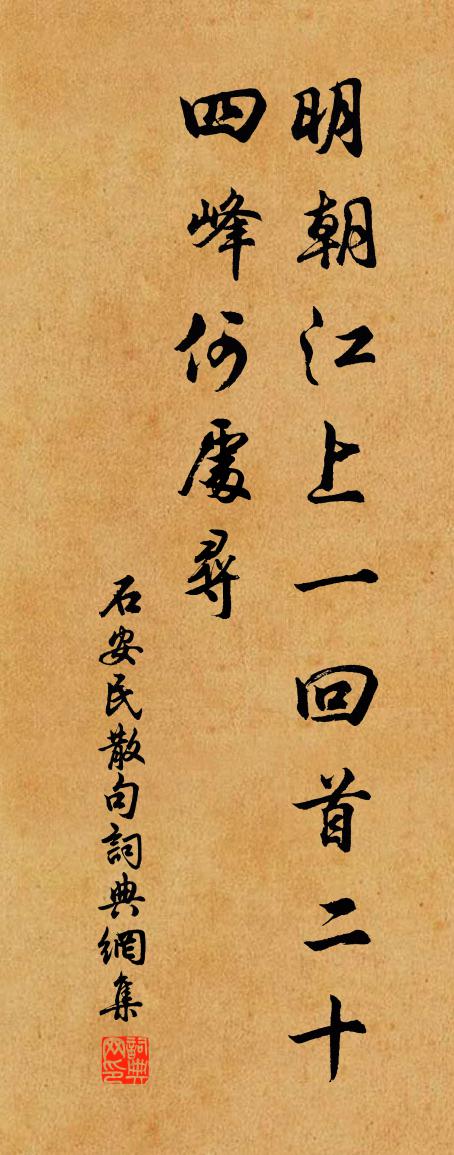 明朝江上一回首二十
四峰何處尋
石安民散句詞典網集
詞典网印